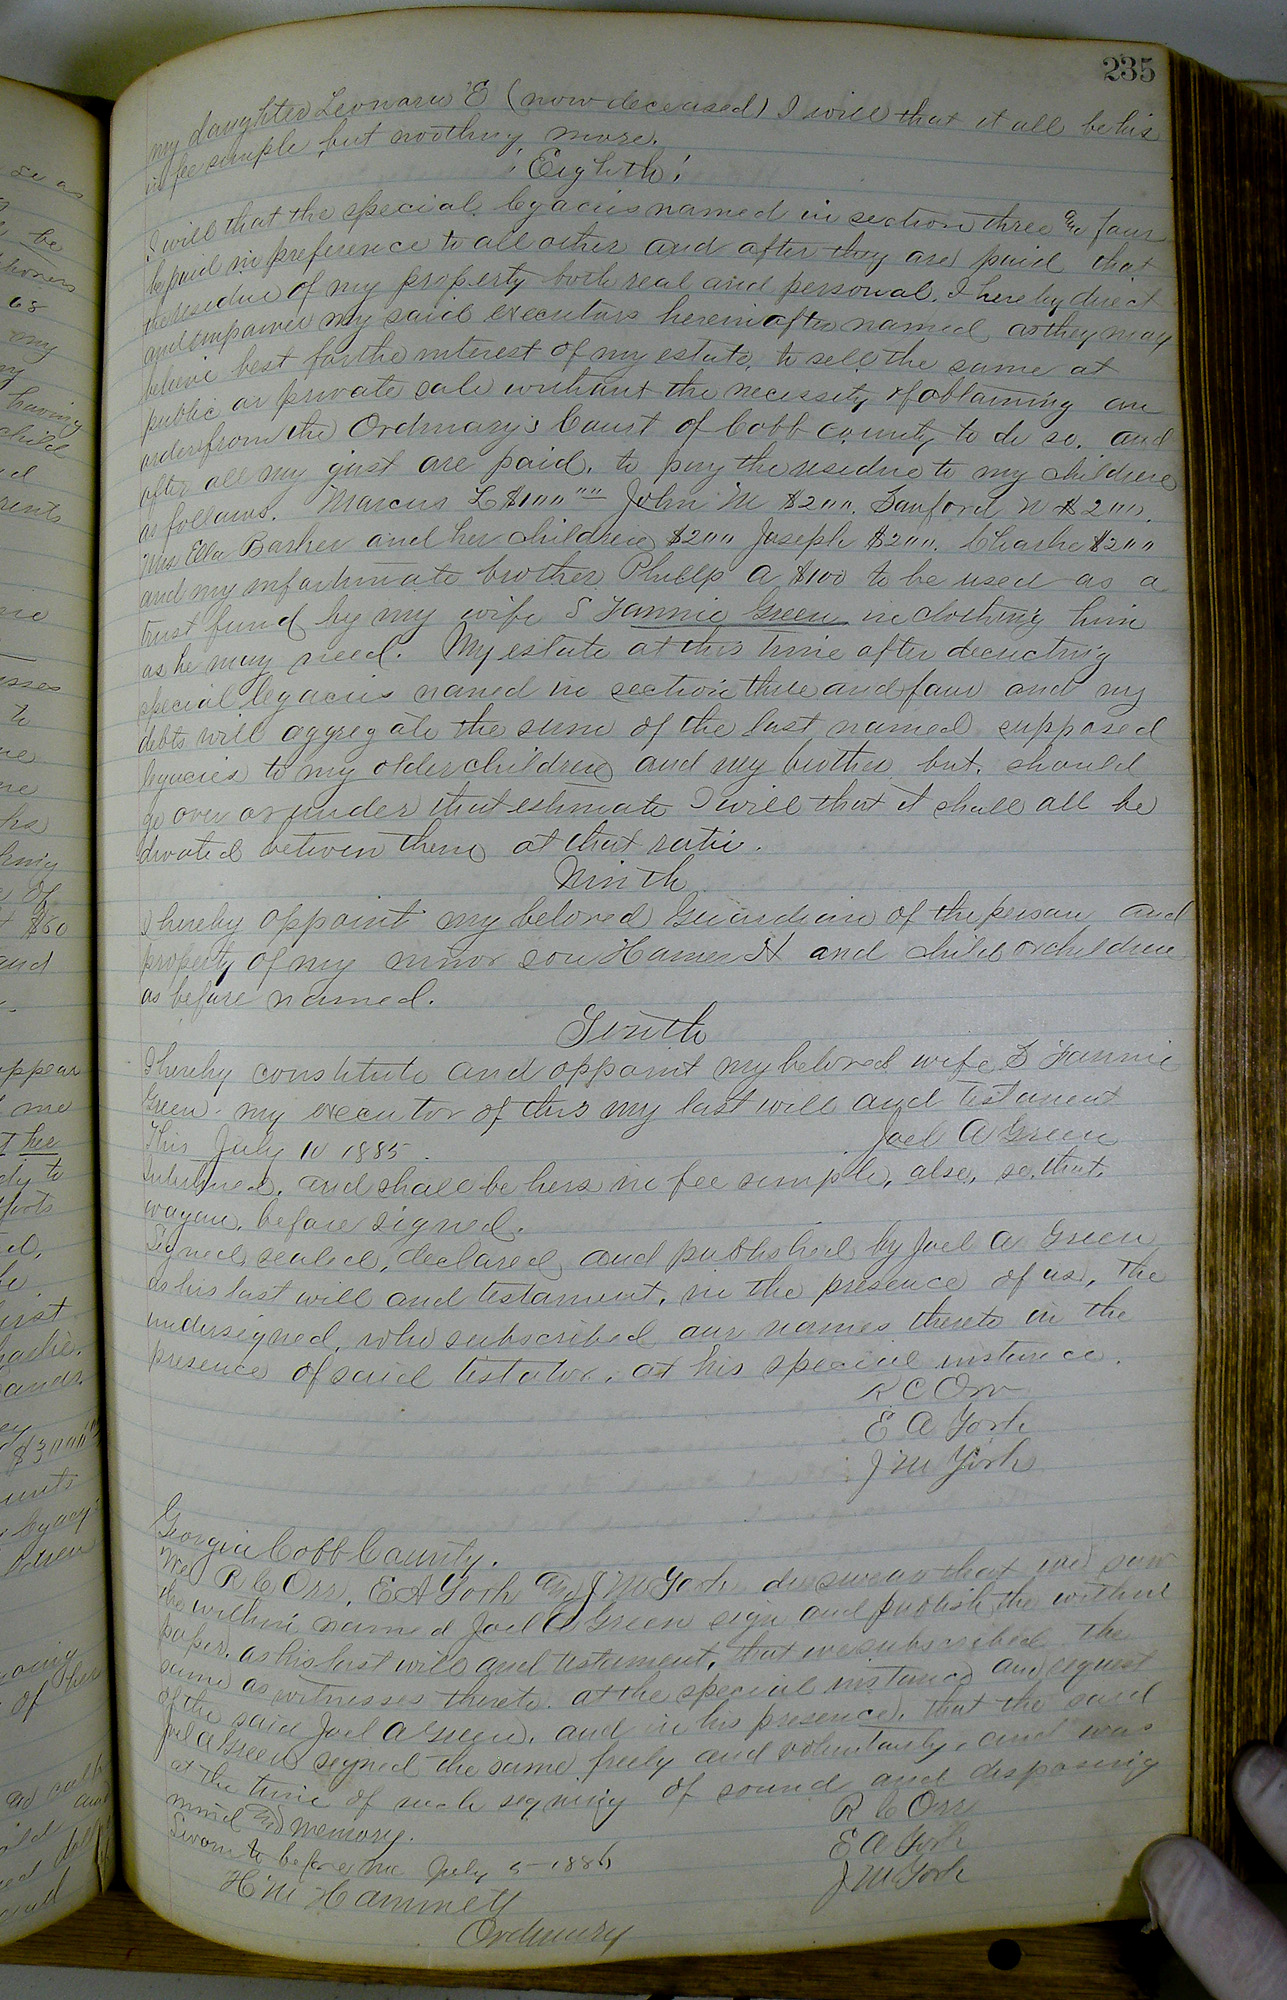 235
my daughter Leonard E (now deceased) I will that it all be his
in fee simple but nothing more.
"Eighth"
I will that the special legacies named in section three and four
be paid in preference to all other and after they are paid that
the residue of my property both real and personal. I hereby direct
and empower my said executors hereinafter named as they may
believe best for the interest of my estate, to sell the same at
public or private sale without the necessity of obtaining an
orders from the Ordinary's Court of Cobb county to do so, and
after all my just are paid, to pay the residue to my children
as follows. Marcus L $100 John M $200. Sanford N $200.
Mrs Ella Barker and her children $200 Joseph $200. Charlie $200
and my unfortunate brother Phillip A $100 to be used as a
trust fund by my wife S Fannie Green in clothing him
as he may need. My estate at this time after deducting
special legacies named in section three and four and my
debts will aggregate the sum of the last named supposed
legacies to my older children and my brother but should
go over or under that estimate I will that it shall all be
divated between them at that ratio.
Ninth
I hereby appoint my beloved Guardian of the person and
property of my minor son Homer H and child or children
as before named.
Tenth
I hereby constitute and appoint my beloved wife S Fannie
Green my executor of this my last will and testament
This July 10 1885. Joel A Green
Interlined, and shall be hers in fee simple, also, so, that,
wagon, before signed.
Signed, sealed, declared and published by Joel A Green
as his last will and testament, in the presence of us, the
undersigned, who subscribed our names thereto in the
presence of said testator, at his special instance.
R C Orr
E A York
J M York
Georgia Cobb County.
We R C Orr, E A York and J M York do swear that we saw
the within named Joel A Green sign and publish the within
paper, as his last will and testament, that we subscribed the
same as witnesses thereto at the special instance and request
of the said Joel A Green, and in his presence, that the said
Joel A Green signed the same freely and voluntarily, and was
at the time of such signing of sound and disposing
mind and memory. R C Orr
Sworn to before me July 5 1886 E A York
H M Hammett J M York
Ordinary